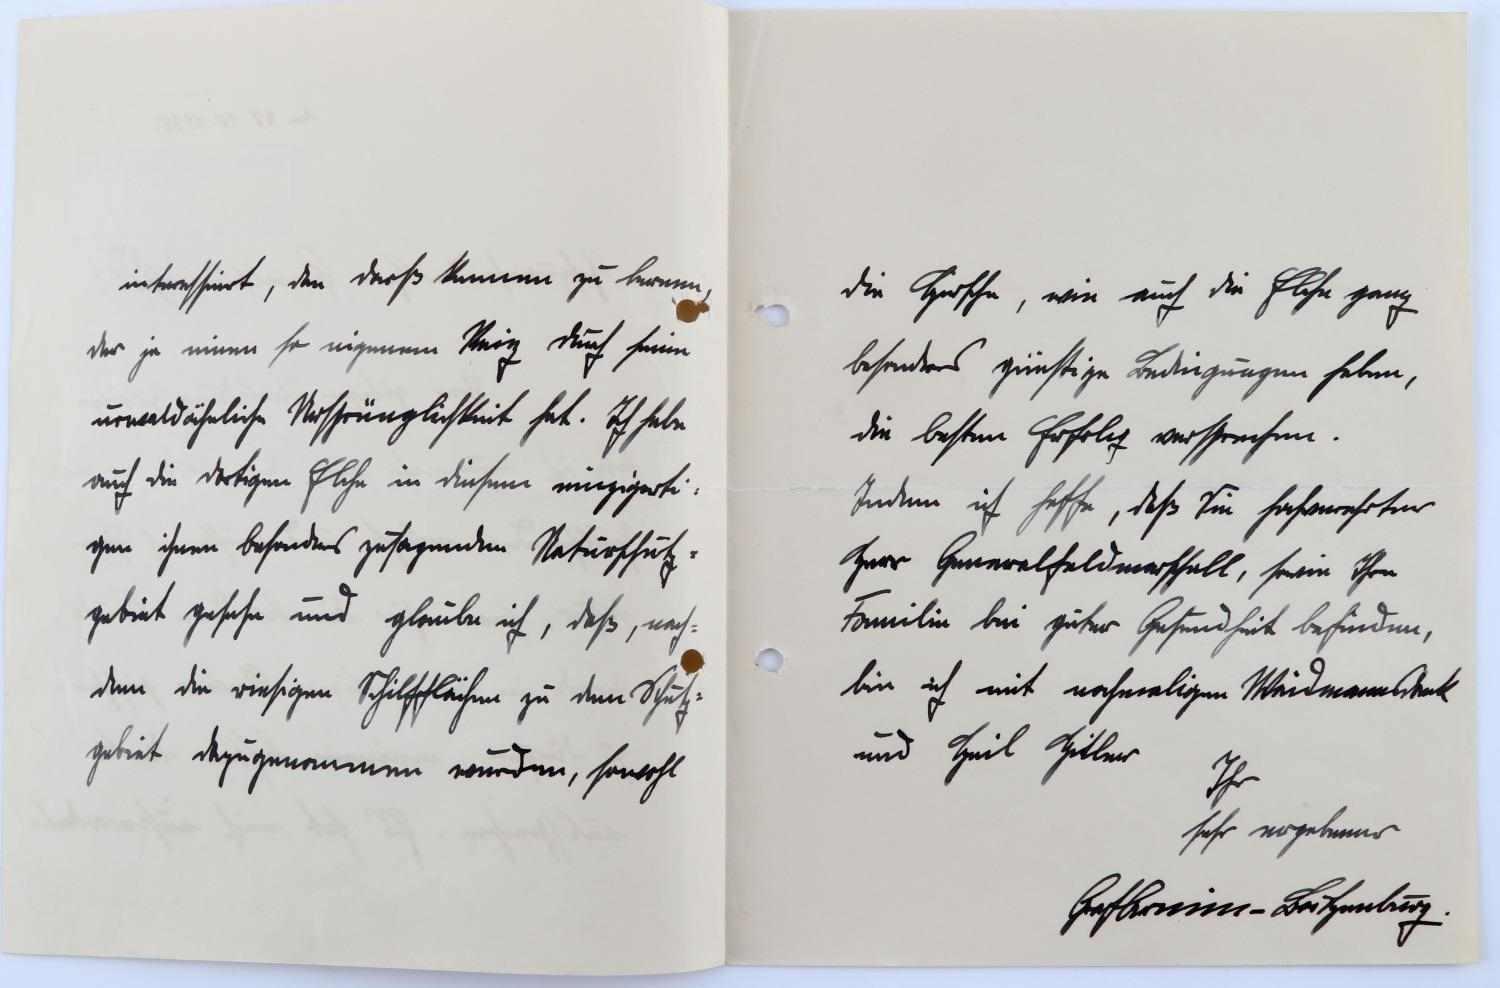 interessiert, den Darß kennen zu lernen,
der ja einen so eigenen Reiz durch seine
urwaldähnliche Ursprünglichkeit hat. Ich habe
auch die dortigen Elche in diesem einzigarti-
gen ihnen besonders zusagenden Naturschutz-
gebiet gesehen und glaube ich, daß, nach-
dem die riesigen Schilfflächen zu dem Schutz-
gebiet dazugenommen wurden, sowohl
die Hirsche, wie auch die Elche ganz
besonders günstige Bedingungen haben,
die besten Erfolg versprechen.
Indem ich hoffe, daß Sie hochverehrter
Herr Generalfeldmarschall, sowie Ihre
Familie bei guter Gesundheit befinden,
bin ich mit nochmaligen Weidmannsdank
und Heil Hitler
Ihr
sehr ergebener
Graf Arnim-Boitzenburg.